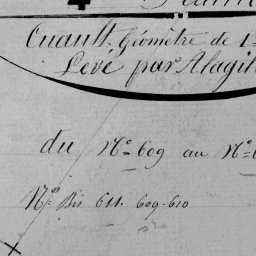 Cuault. Géomètre de 1
Levé par Alagil
du Nº 609 au Nº
Nº Bis 611. 609-610